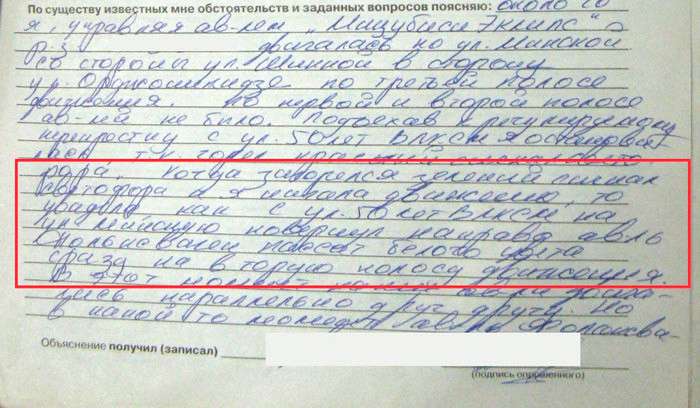 По существу известных мне обстоятельств и заданных вопросов поясняю: около
я, управляя ав-лем „Мицубиси Эклипс“
двигалась по ул. Минской
со стороны ул. Шинной в сторону
ул. Орджоникидзе по третьей полосе
движения. По первой и второй полосе
ав-лей не было. Подъехав к
перекрестку с ул. 50 лет ВЛКСМ я
горел красный
Когда загорелся зеленый сигнал
светофора и я начала движение, то
увидела как с ул. 50 лет ВЛКСМ на
повернул направо а/мль
Фольксваген Пассат белого цвета
сразу на вторую полосу движения.
В этот момент
параллельно друг другу. Но
в какой то момент
Объяснение получил (записал)
(подпись опрошенного)